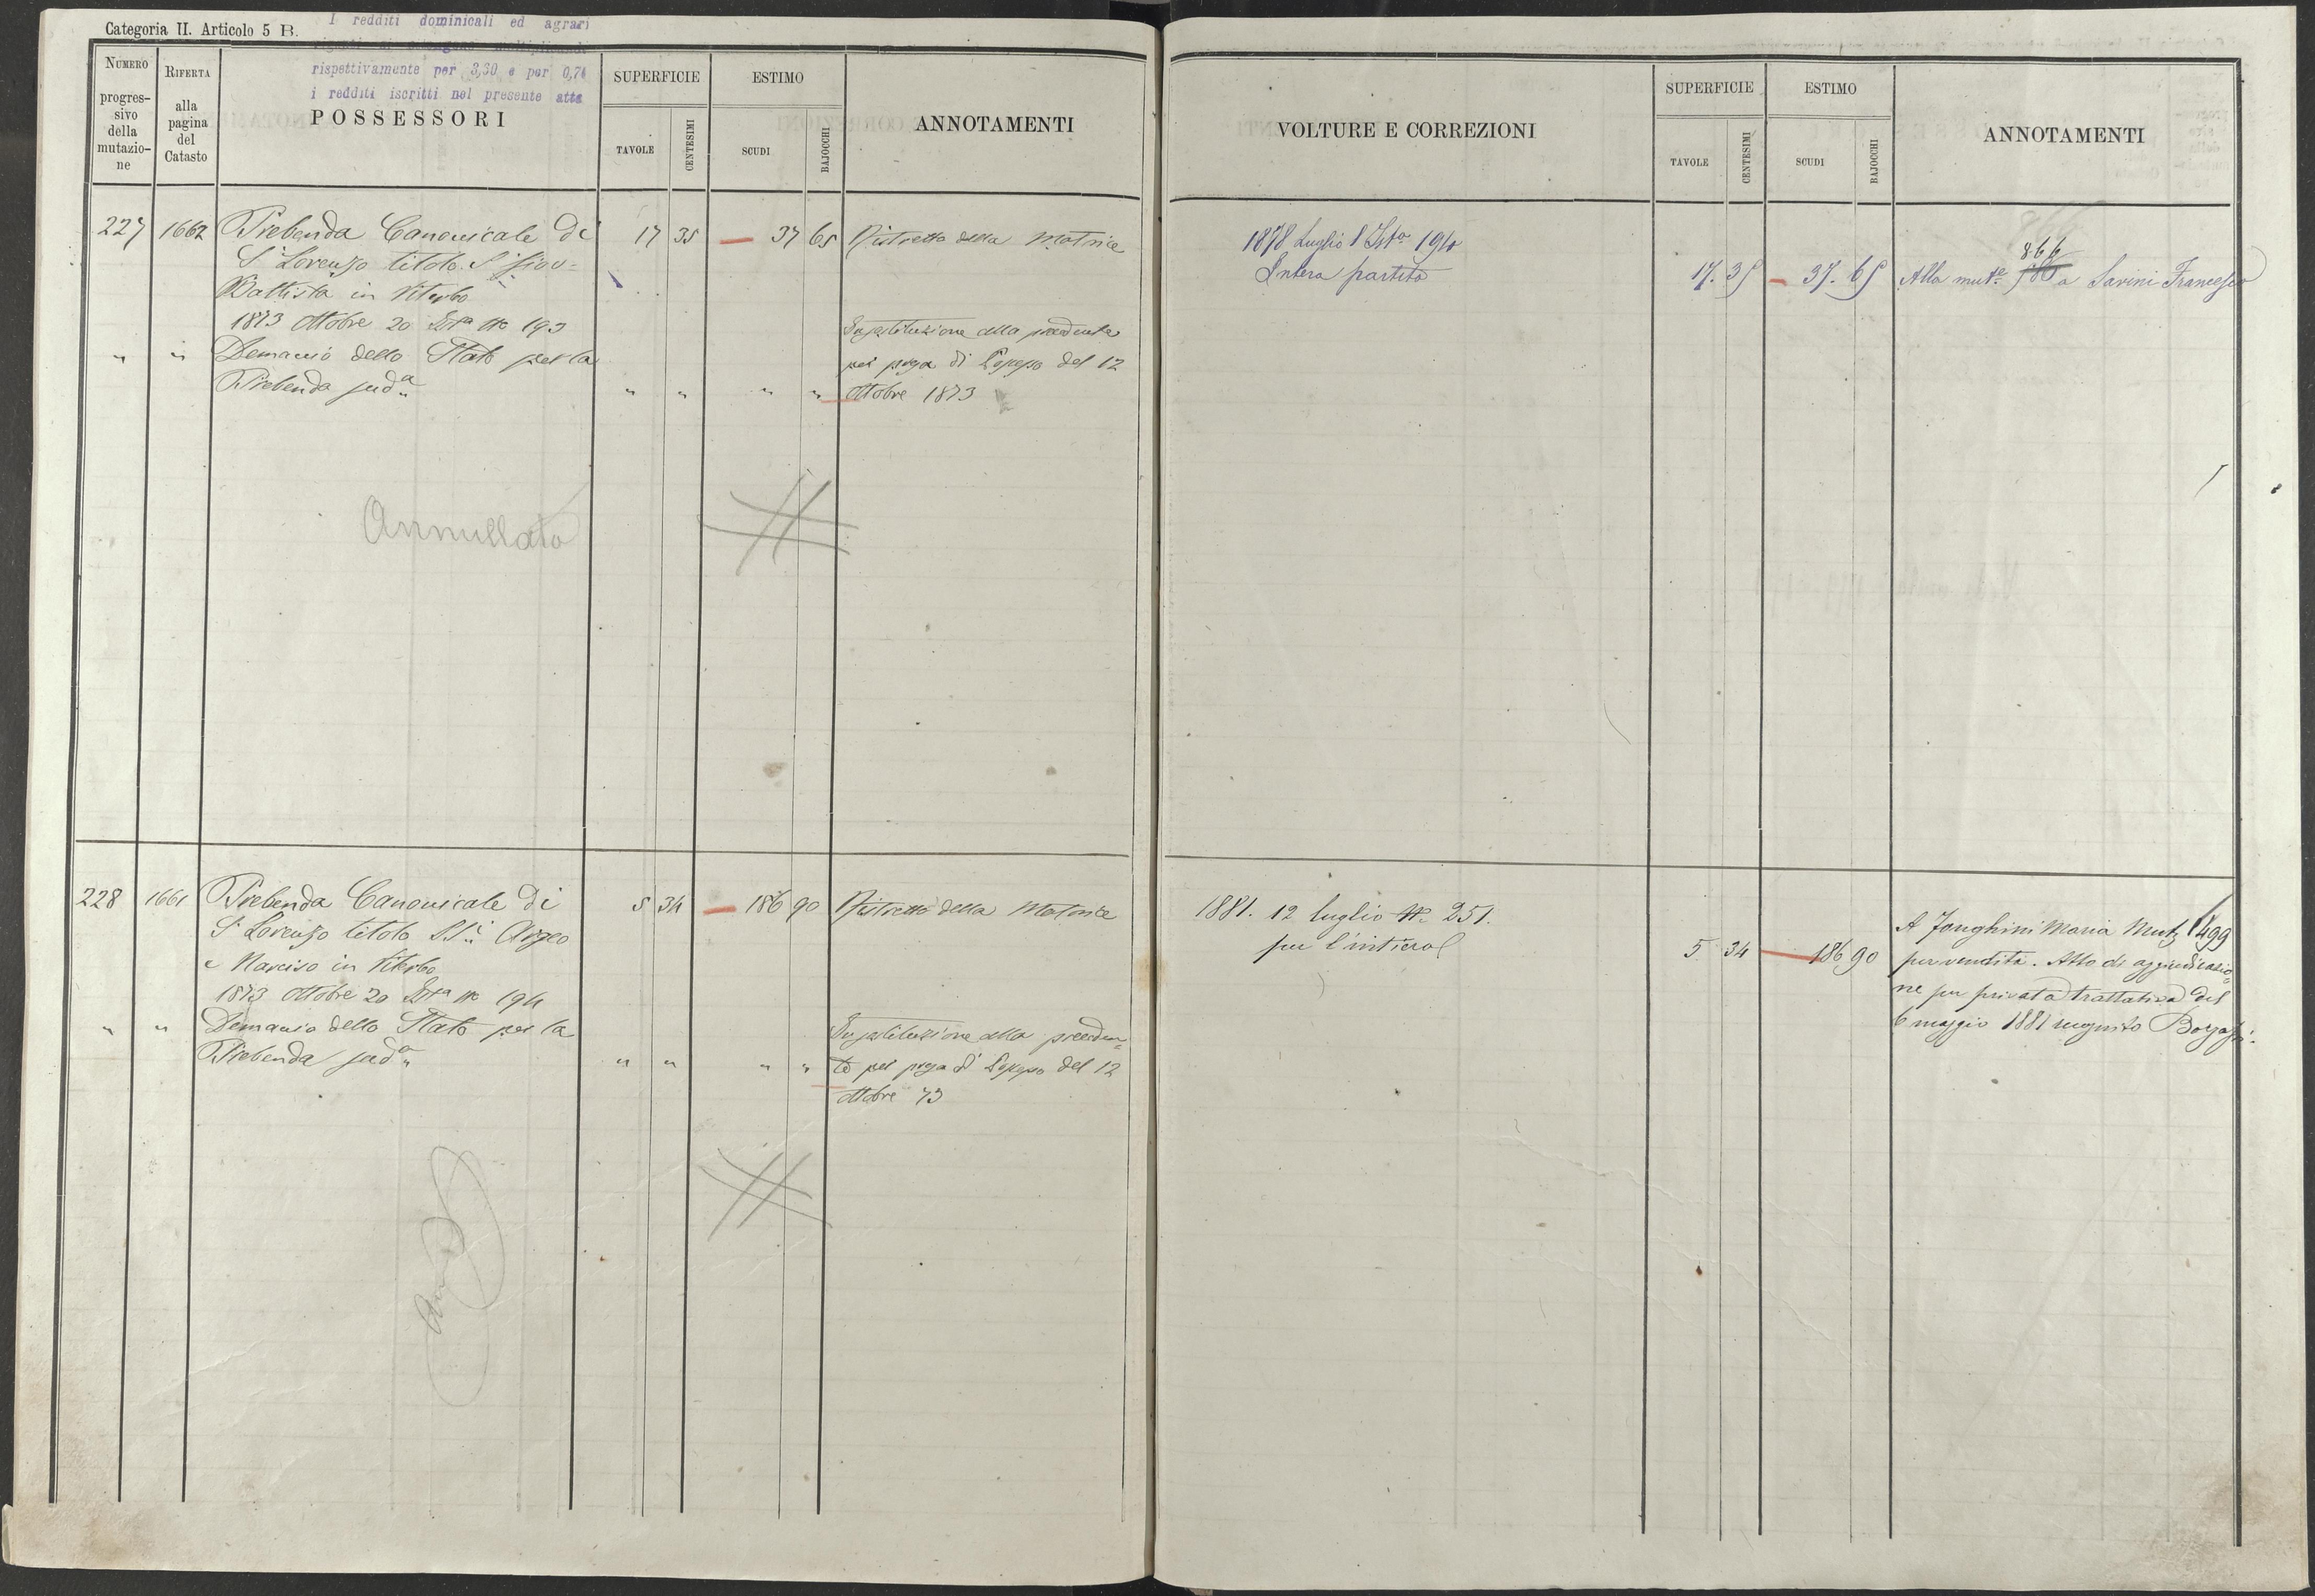 Categoria II. Articolo 5 B.
I redditi dominicali ed agrari
rispettivamente per 3,30 e per 0,74
i redditi iscritti nel presente atto
NUMERO
progres-
sivo
della
mutazio-
ne
RIFERTA
alla
pagina
del
Catasto
POSSESSORI
SUPERFICIE
TAVOLE
CENTESIMI
ESTIMO
SCUDI
BAJOCCHI
ANNOTAMENTI
227 1662 Prebenda Canonicale di 17 35 37 65 Ristretto della Matrice
S. Lorenzo titolo S. Giov=
Battista in Viterbo
1873 Ottobre 20 Ista No 193
" " Demanio dello Stato per la
Prebenda sudª " " " "
Sustituzione alla precedente
per presa di Possesso del 12
Ottobre 1873
Annullato
228 1661 Prebenda Canonicale di 5 34 186 90 Ristretto della Matrice
S. Lorenzo titolo SSi Argeo
e Narciso in Viterbo
1873 Ottobre 20 Ista No 194
" " Demanio dello Stato per la
Prebenda sudª " " " "
Sustituzione alla preceden=
te per presa di Possesso del 12
Ottobre 73
VOLTURE E CORREZIONI
SUPERFICIE
TAVOLE
CENTESIMI
ESTIMO
SCUDI
BAJOCCHI
ANNOTAMENTI
1878 Luglio 8 Ista 190
Intera partita 17. 35 37. 65 Alla mute 866 a Savini Francesco
1881. 12 luglio No 251.
per l'intiero 5 34 186 90
A Jonghini Maria Mutz 1499
per vendita. Atto di aggiudicazio=
ne per privata trattativa del
6 maggio 1881 rogito Borgassi.